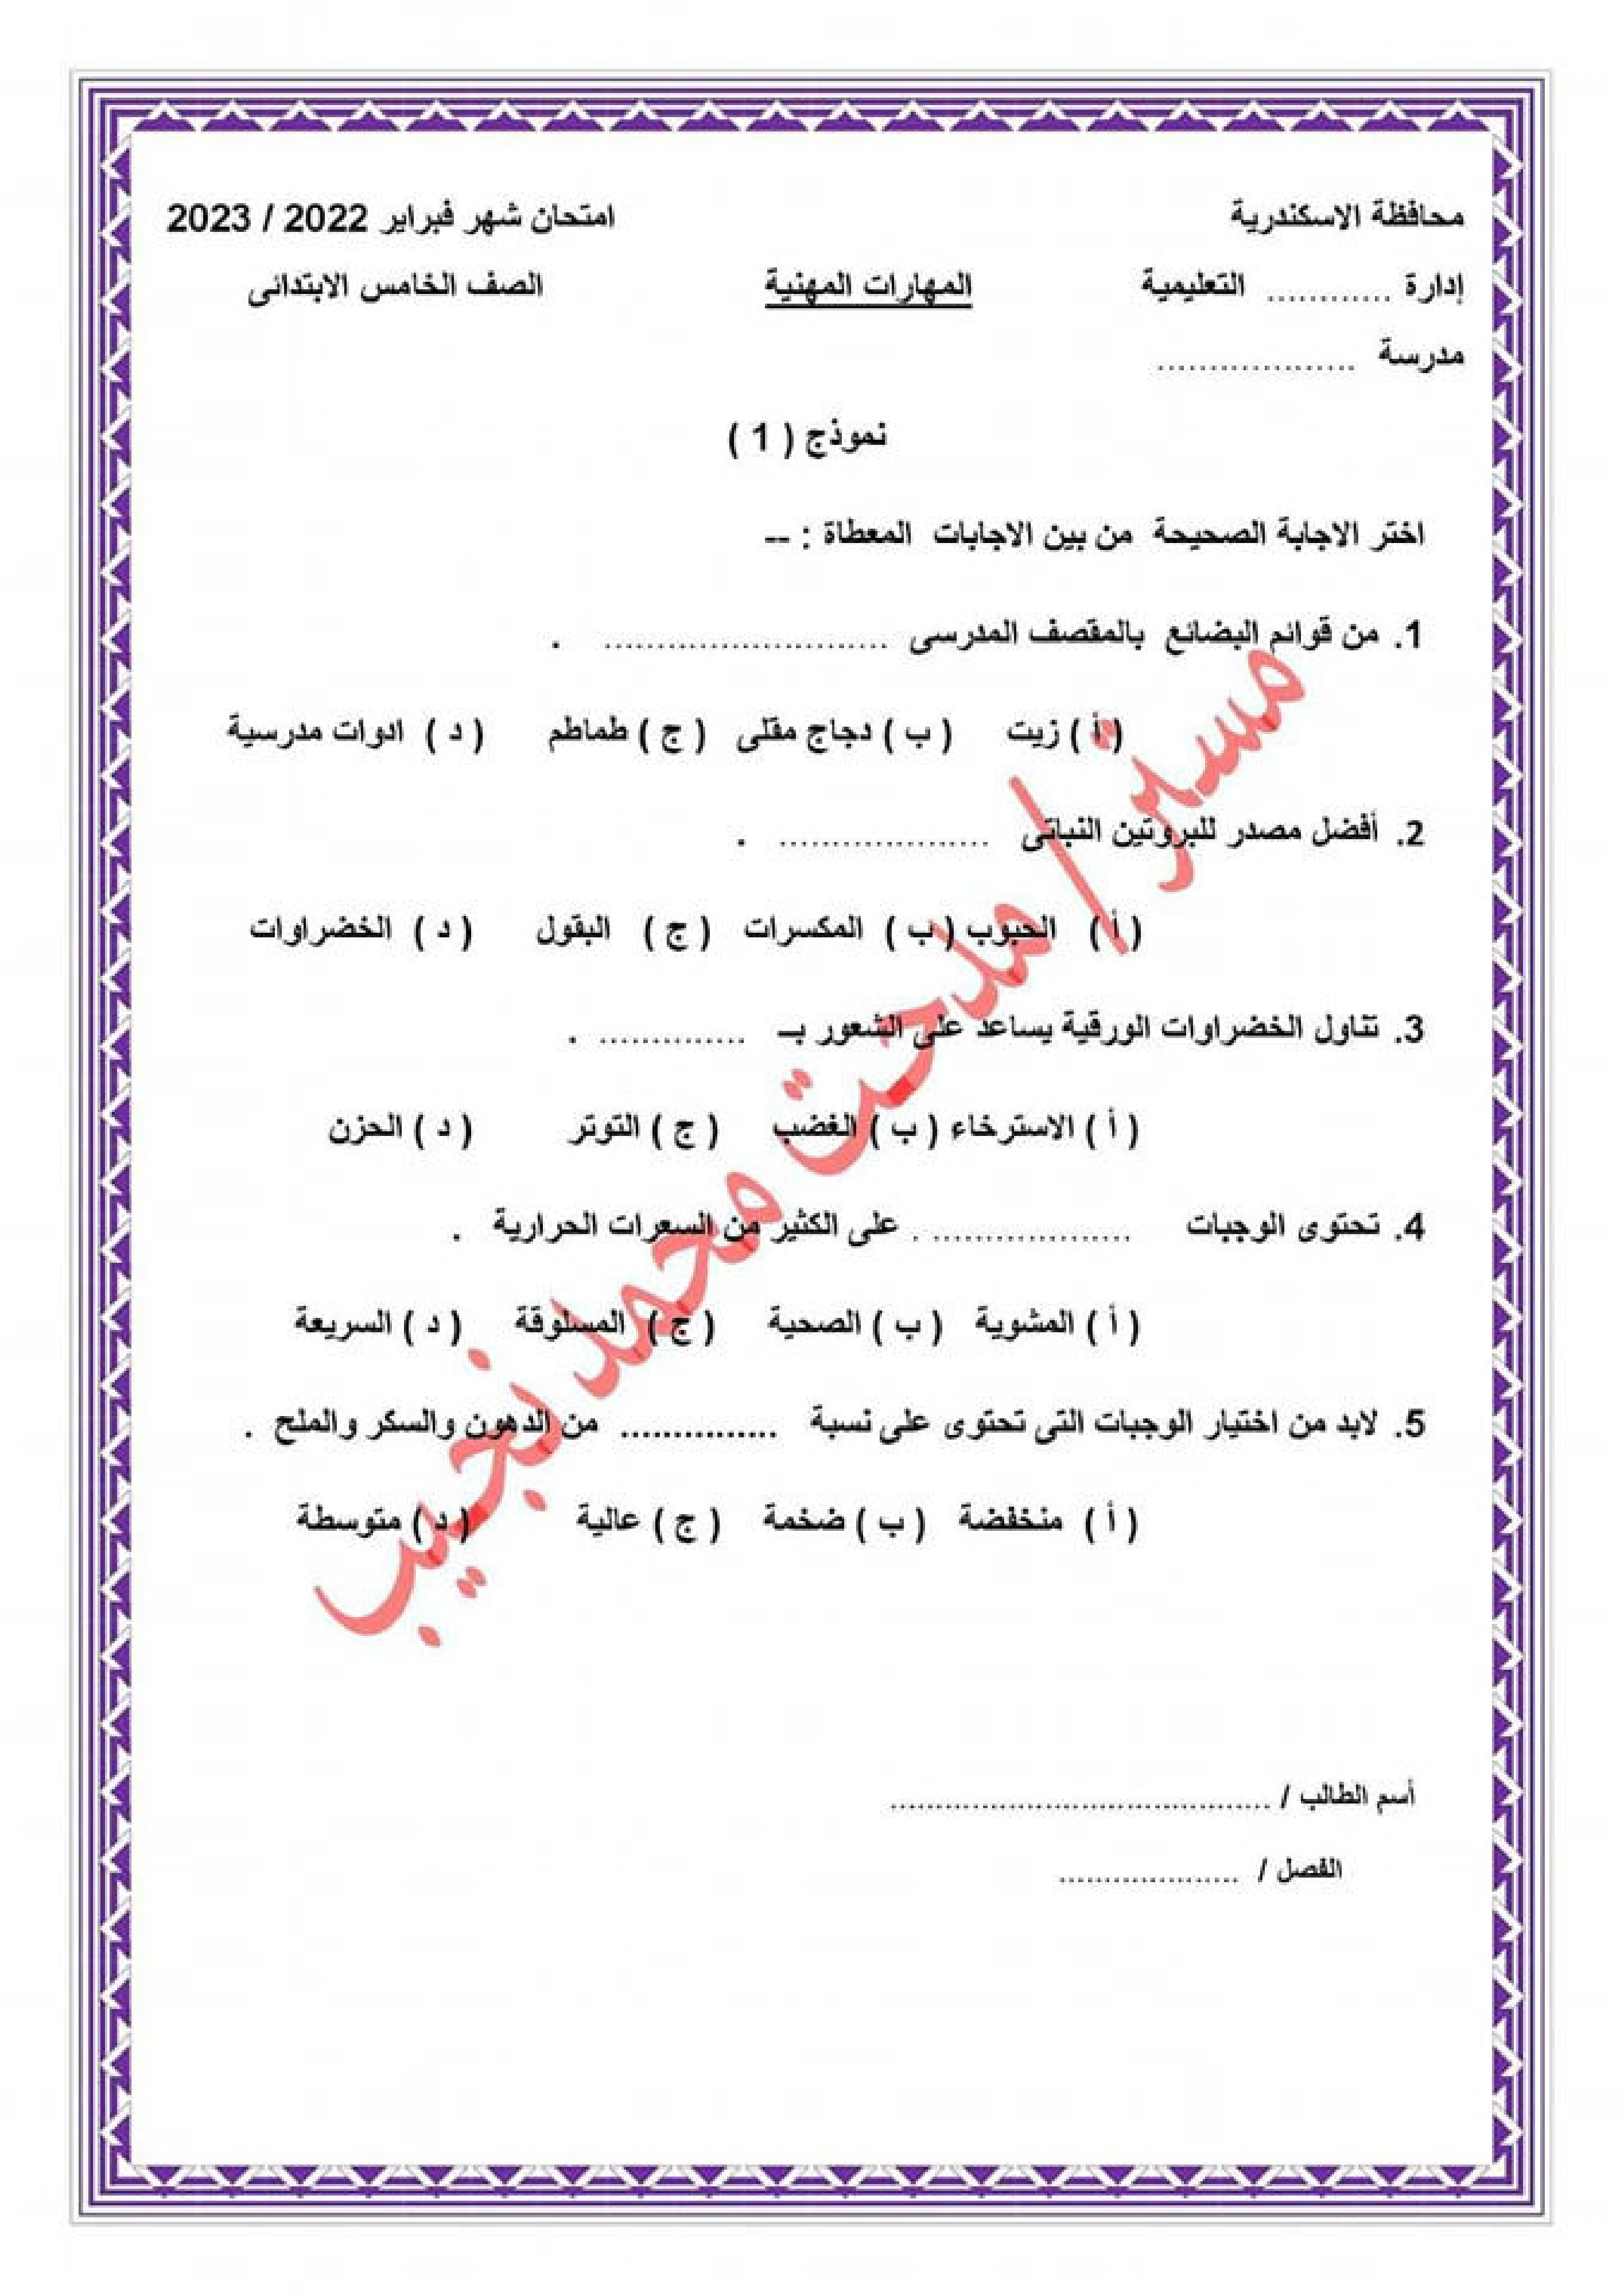 محافظة الاسكندرية امتحان شهر فبراير 2022 / 2023
إدارة ............ التعليمية المهارات المهنية الصف الخامس الابتدائى
مدرسة ...................
نموذج ( 1 )
اختر الاجابة الصحيحة من بين الاجابات المعطاة : --
1. من قوائم البضائع بالمقصف المدرسى ........................... .
( أ ) زيت ( ب ) دجاج مقلى ( ج ) طماطم ( د ) ادوات مدرسية
2. أفضل مصدر للبروتين النباتى .................... .
( أ ) الحبوب ( ب ) المكسرات ( ج ) البقول ( د ) الخضراوات
3. تناول الخضراوات الورقية يساعد على الشعور بــ .............. .
( أ ) الاسترخاء ( ب ) الغضب ( ج ) التوتر ( د ) الحزن
4. تحتوى الوجبات ................... . على الكثير من السعرات الحرارية .
( أ ) المشوية ( ب ) الصحية ( ج ) المسلوقة ( د ) السريعة
5. لابد من اختيار الوجبات التى تحتوى على نسبة ............... من الدهون والسكر والملح .
( أ ) منخفضة ( ب ) ضخمة ( ج ) عالية ( د ) متوسطة
مستر/ مدحت محمد نجيب
أسم الطالب / ..........................................
الفصل / ....................